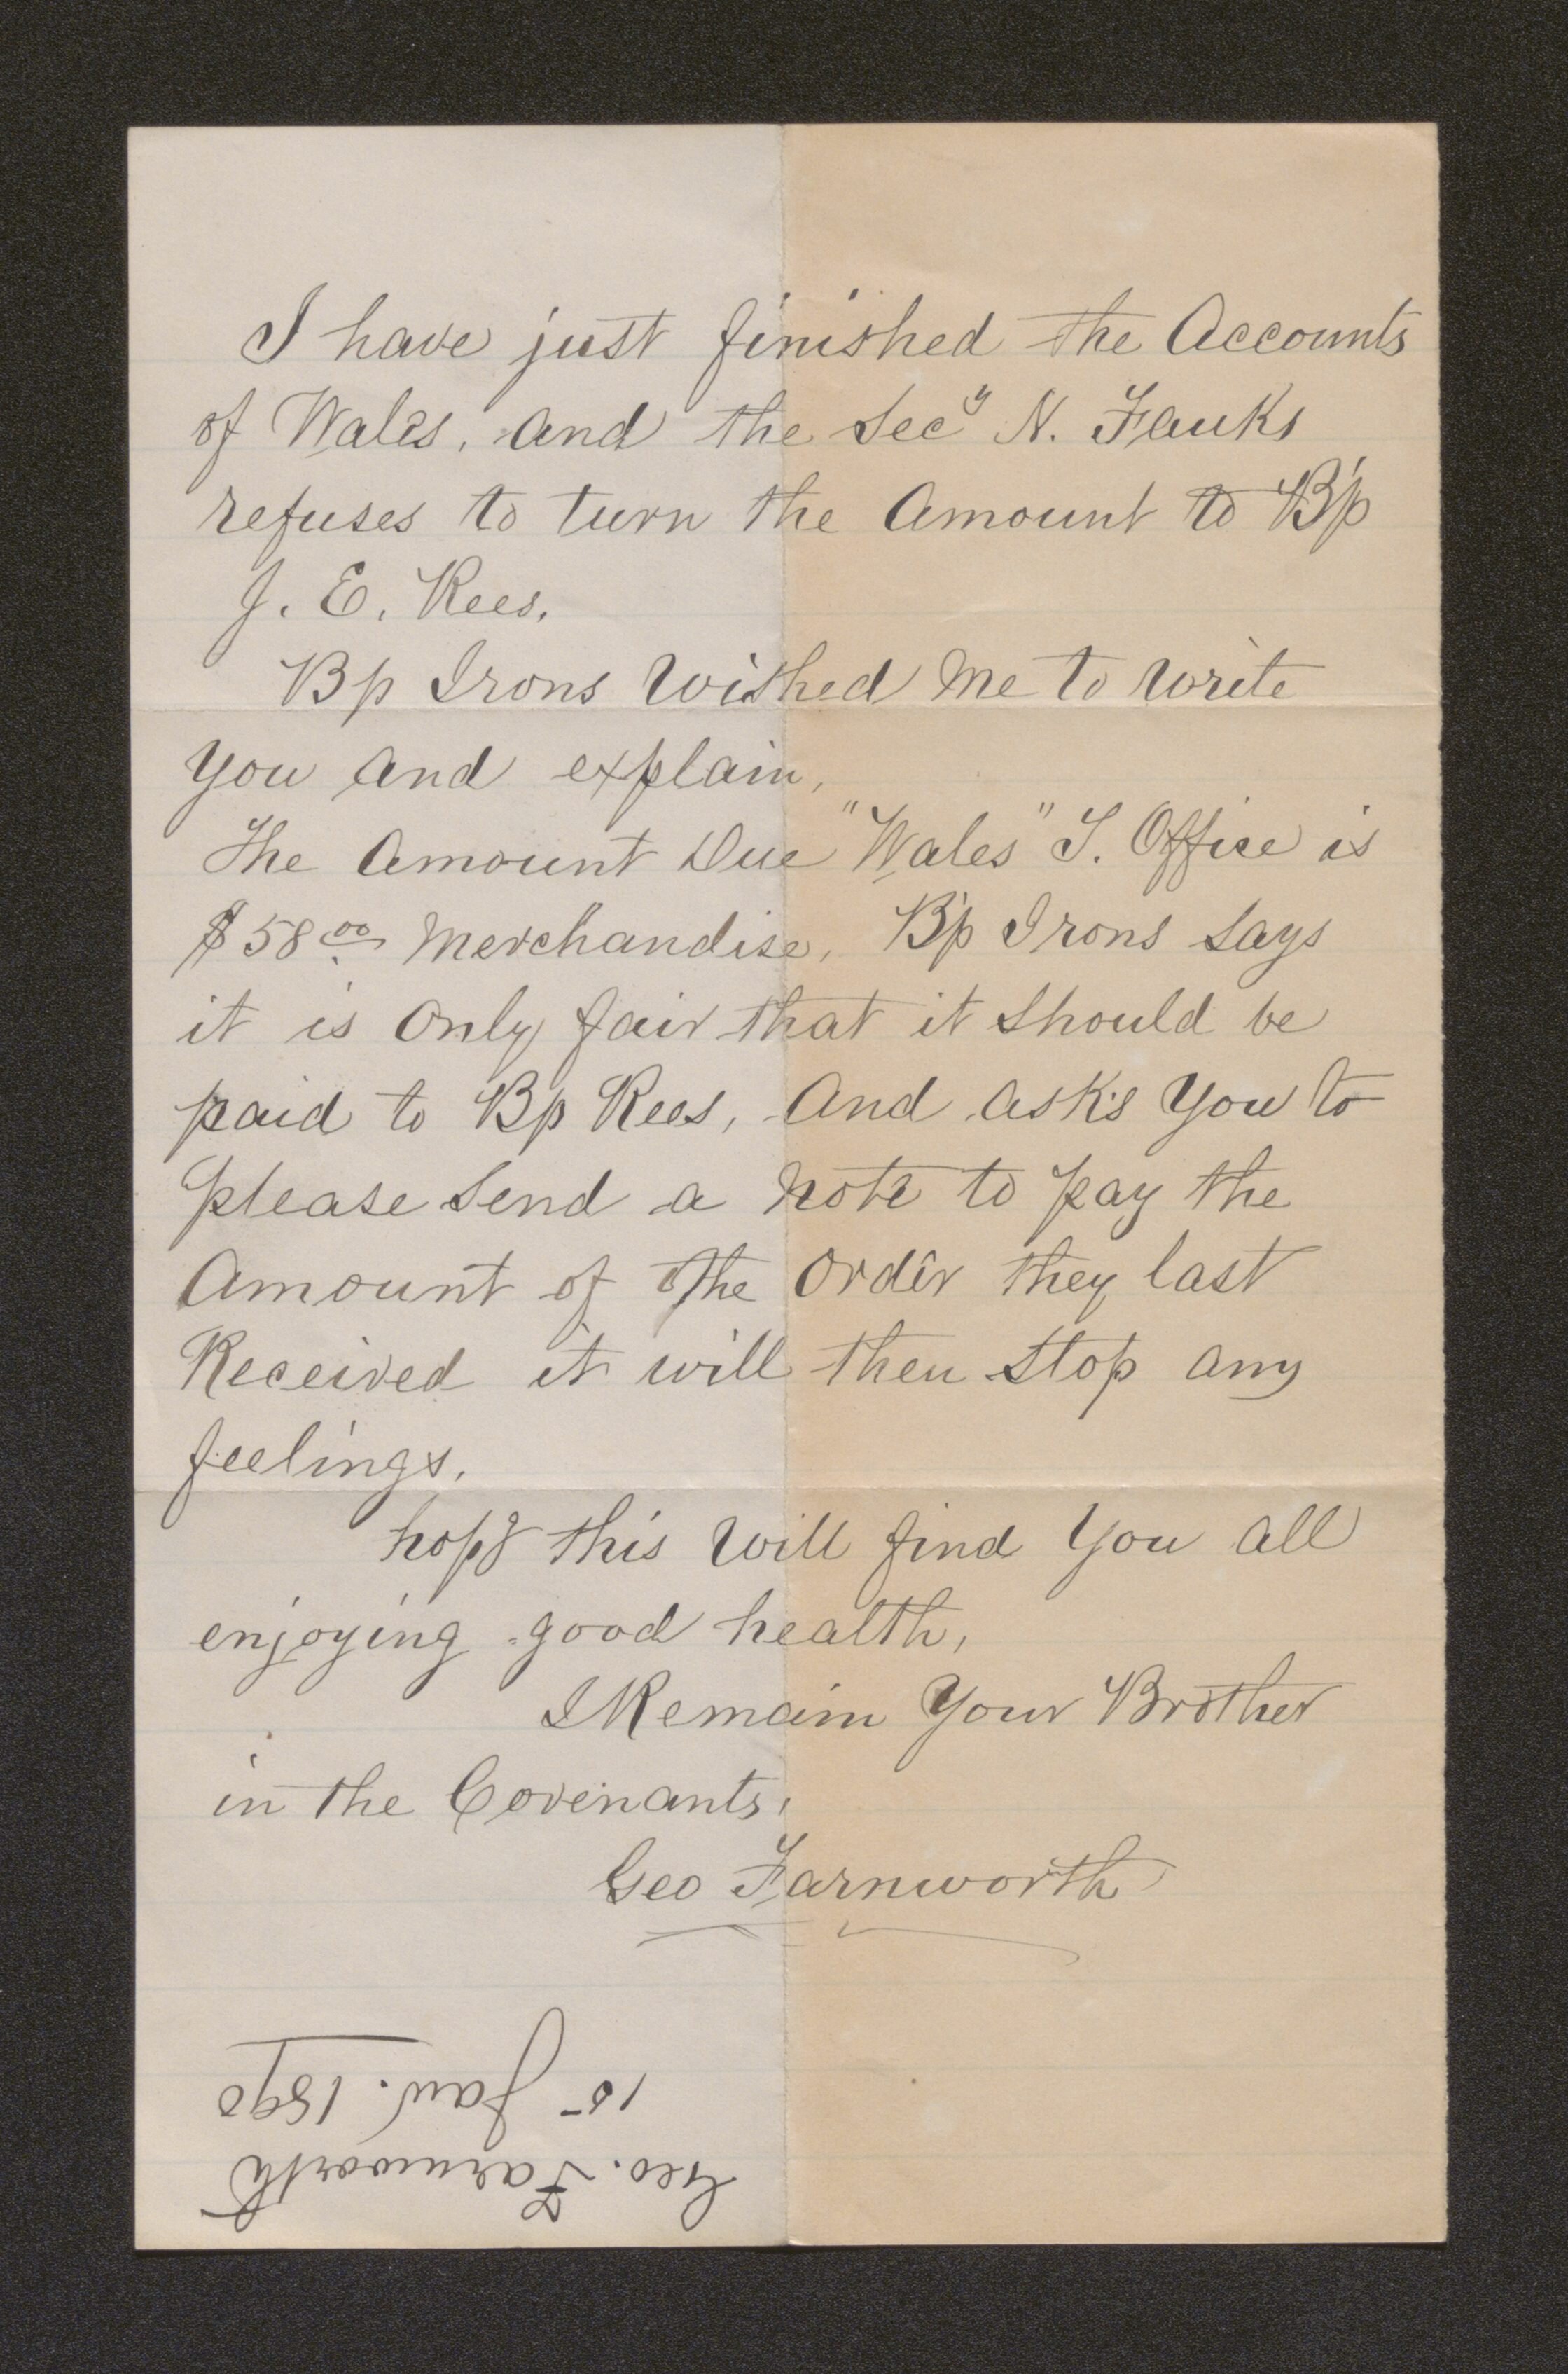 I have just finished the Accounts
of Wales, and the Secy N. Fauks
refuses to turn the Amount to B'p
J. E. Rees.
Bp Irons Wished Me to Write
You and explain,
The Amount Due "Wales" T. Office is
$58 00 Merchandise, B'p Irons Says
it is Only fair that it Should be
paid to Bp Rees, And asks You to
please Send a Note to pay the
Amount of The Order they last
Received it will then Stop any
feelings.
hopg this Will find You all
enjoying good health,
I Remain Your Brother
in the Covenants,
Geo Farnworth
Geo. Farnworth
15 Jan. 1890